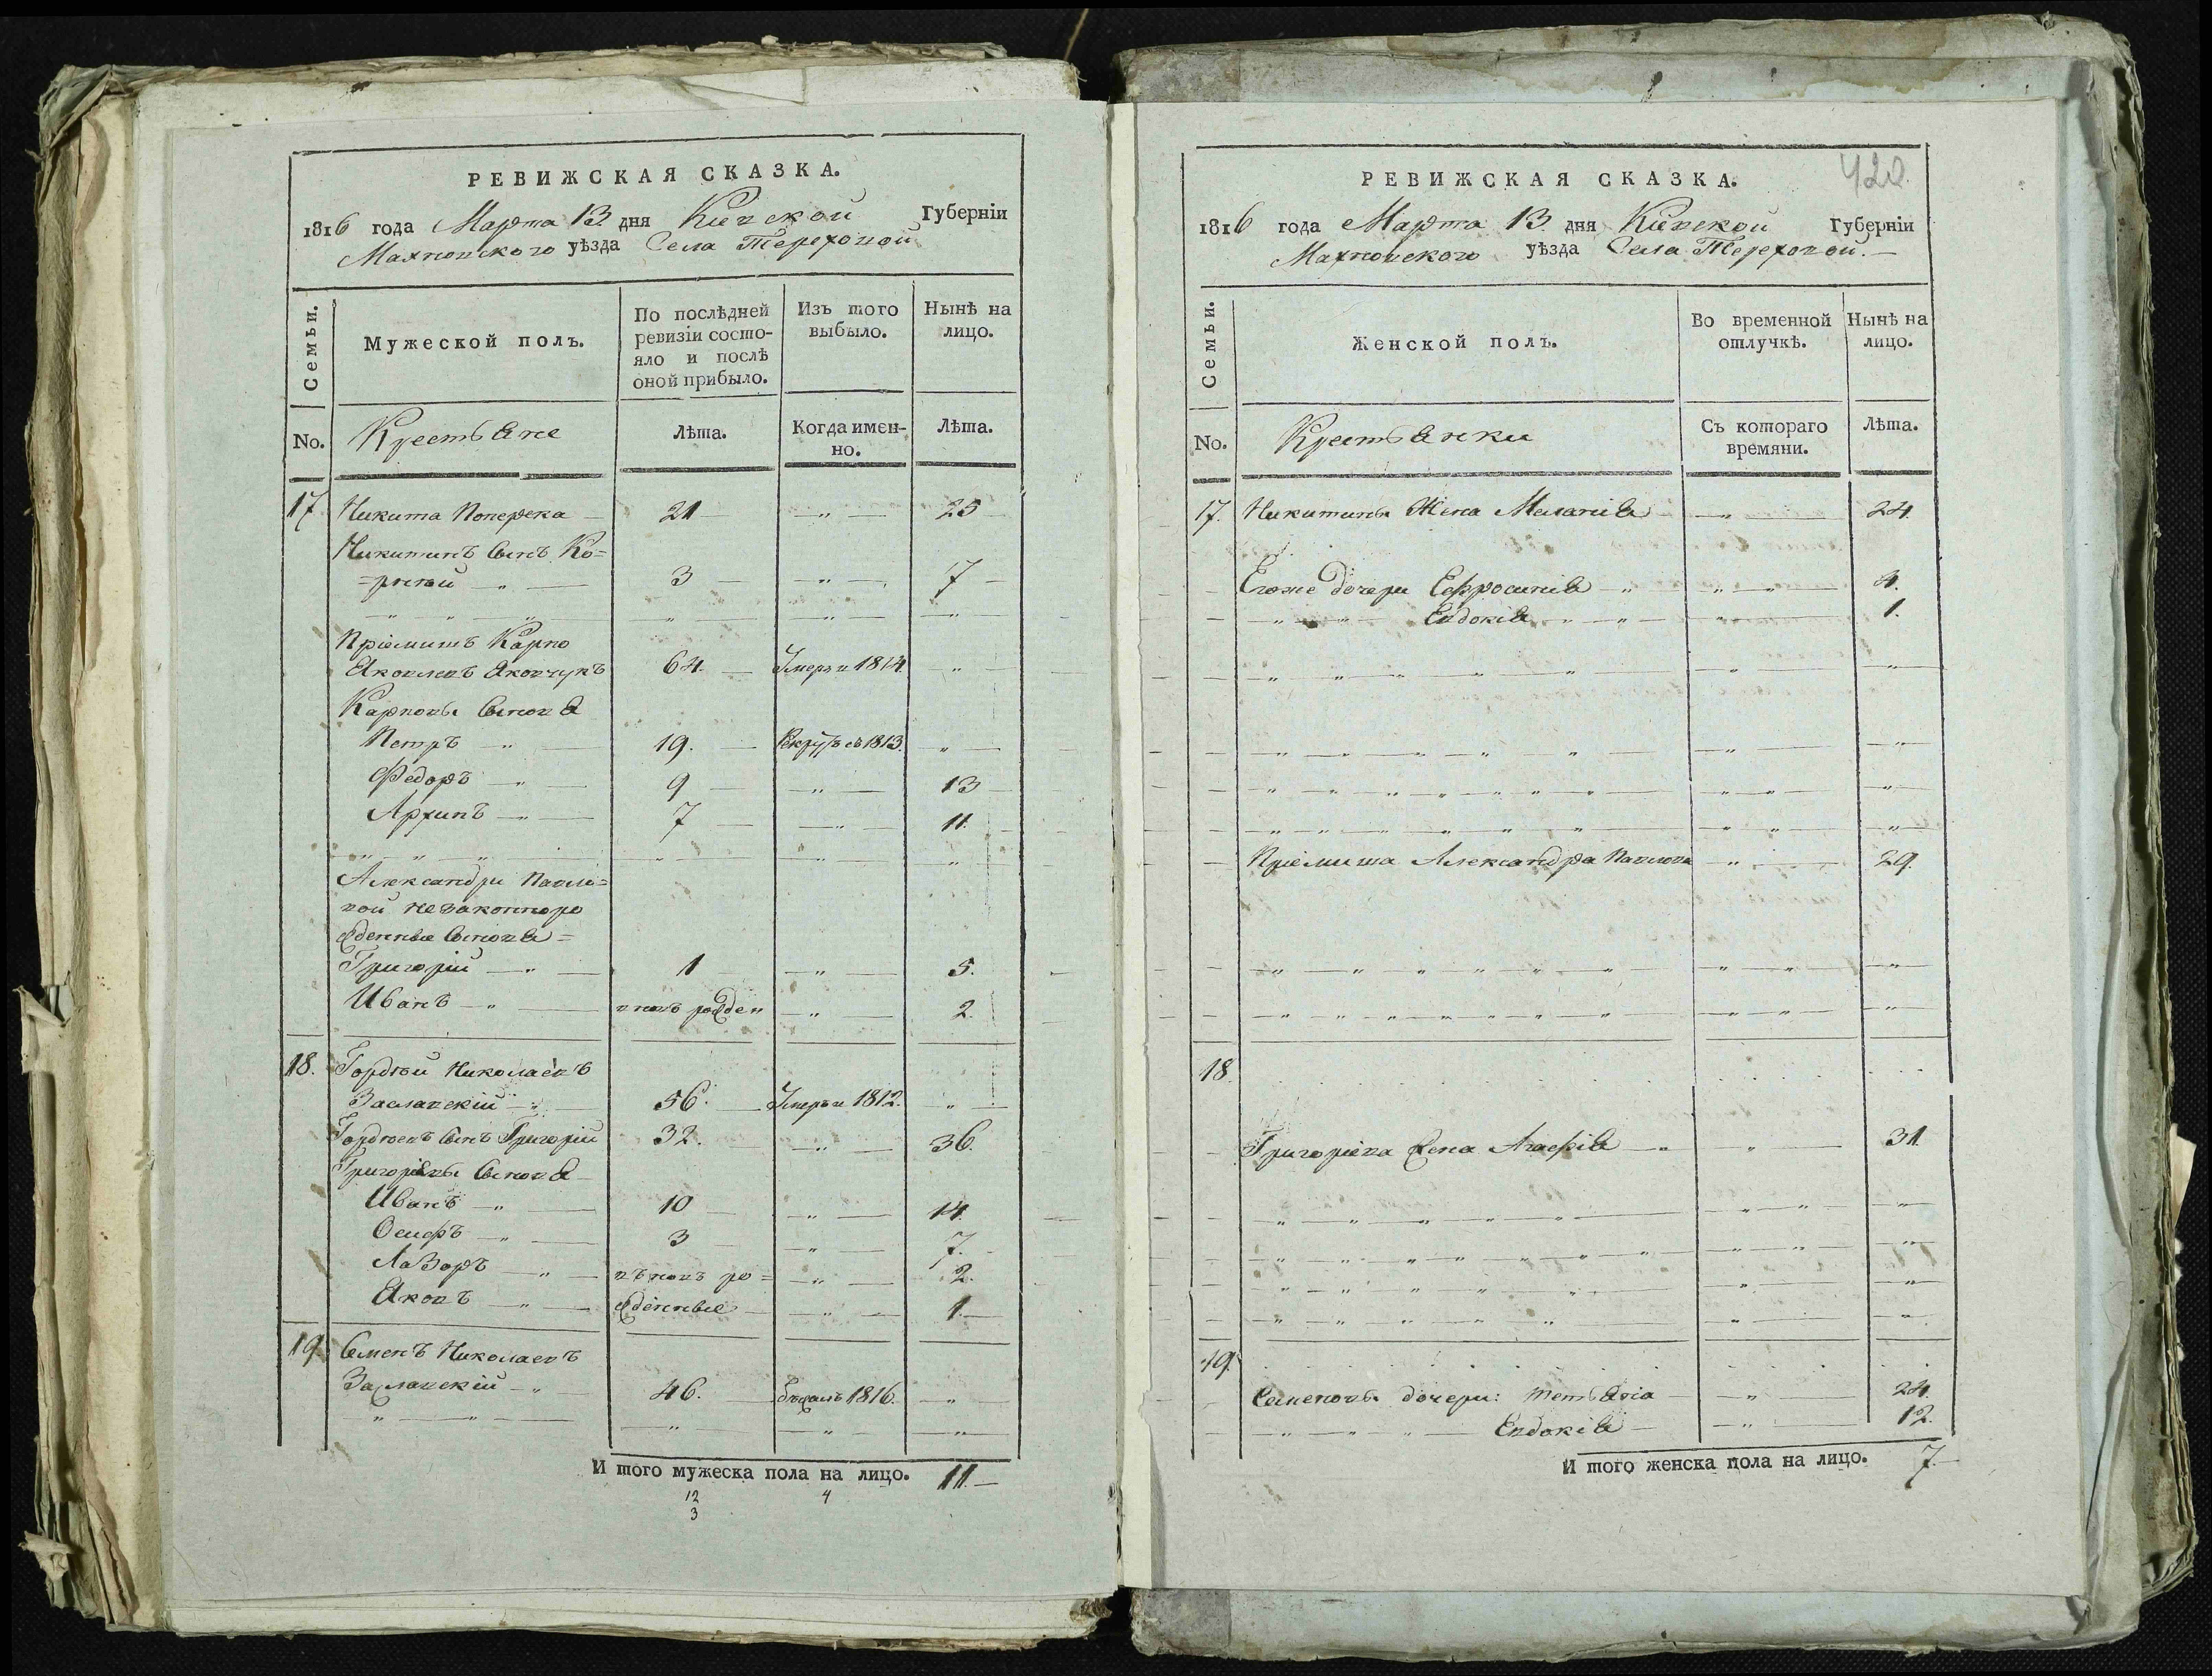 РЕВИЖСКАЯ СКАЗКА.
1816 года Марта 13 дня Кіевской Губерніи
Махновского уѣзда Села Терехової
Семьи.
Мужеской полъ.
По послѣдней
ревизіи состо-
яло и послѣ
оной прибыло.
Изъ того
выбыло.
Нынѣ на
лицо.
No.
Крестьяне
Лѣта.
Когда имен-
но.
Лѣта.
17 Никита Поперека 21 25
Никитинъ Сынъ Ко=
=рнѣй 3 7
Пріемитъ Карпо
Яковлевъ Яковчукъ 64. Умеръ в 1814.
Карповы Сыновя
Петръ 19. Рекрут. въ 1813.
Федоръ 9 13
Архипъ 7 11.
Александри Павло=
вой незаконноро
жденные Сыновя=
Григорій 1 5.
Иванъ вновь рожден 2.
18. Гордѣй Николаевъ
Заславскій 56. Умеръ в 1812.
Гордѣевъ Сынъ Григорій 32. 36.
Григоріевы Сыновя
Иванъ 10 14.
Осифъ 3 7.
Лазоръ вѣновъ ро= 2.
Яковъ жденные 1.
19. Семенъ Николаевъ
Заславскій 46. Бѣжалъ 1816.
И того мужеска пола на лицо. 11.
12 4
3
420.
РЕВИЖСКАЯ СКАЗКА.
1816 года Марта 13 дня Кіевской Губерніи
Махновского уѣзда Села Терехової.
Семьи.
Женской полъ.
Во временной
отлучкѣ.
Нынѣ на
лицо.
No.
Крестьянки
Съ котораго
времяни.
Лѣта.
17. Никитина Жена Меланія 24.
Егоже дочери Ефросинія 4.
Евдокія 1.
Пріемиша Александра Павлова 29.
18.
Григоріева жена Агафія 31.
19.
Семеновы дочери: Тетьяна 24.
Евдокія 12.
И того женска пола на лицо. 7.